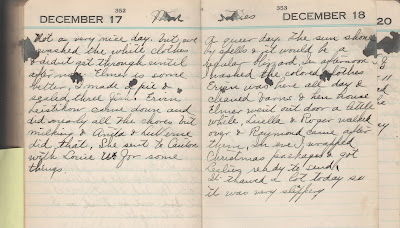 352
DECEMBER 17
Not a very nice day. but we
washed the white clothes
& didn't get through until
afternoon. Elmer is some
better, I made a pie &
sealed their jim. Ervin
down and
did nearly all the chores but
milking & Anita & hullerme
did that. She went to Canton
with Louise U for some
things.
353
DECEMBER 18
A queer day. The sun shone
by spells & it would be a
regular blizzard. In afternoon
washed the colored clothes
Ervin was here all day &
cleaned barns & hen house
Elmer went out door a little
while, Luella & Roger walked
over & Raymond came after
them. In eve I wrapped
Christmas packages & got
ready to send.
It thawed a lot today so
it was very slippery
20